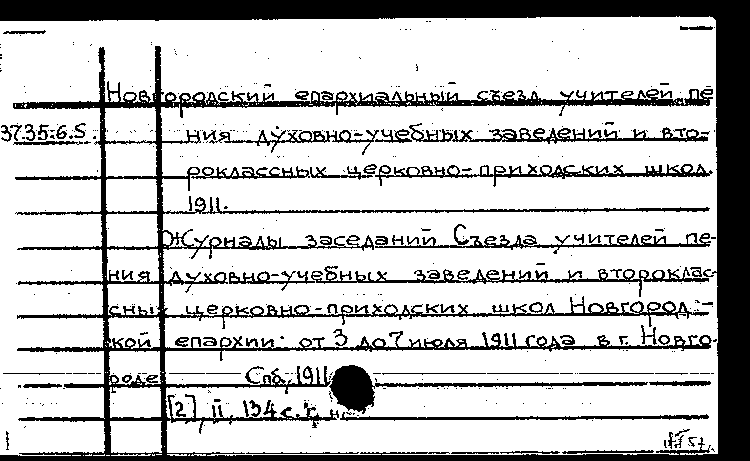 Новгородский епархиальный съезд учителей пе
3735.6.S. ния духовно-учебных заведений и вто-
роклассных церковно-приходских школ.
1911.
Журналы заседаний Съезда учителей пе-
ния духовно-учебных заведений и второклас-
сных церковно-приходских школ Новгород-
кой епархии: от 3 до 7 июля 1911 года в г. Новго-
роде Спб, 1911
[2], II, 134 с.